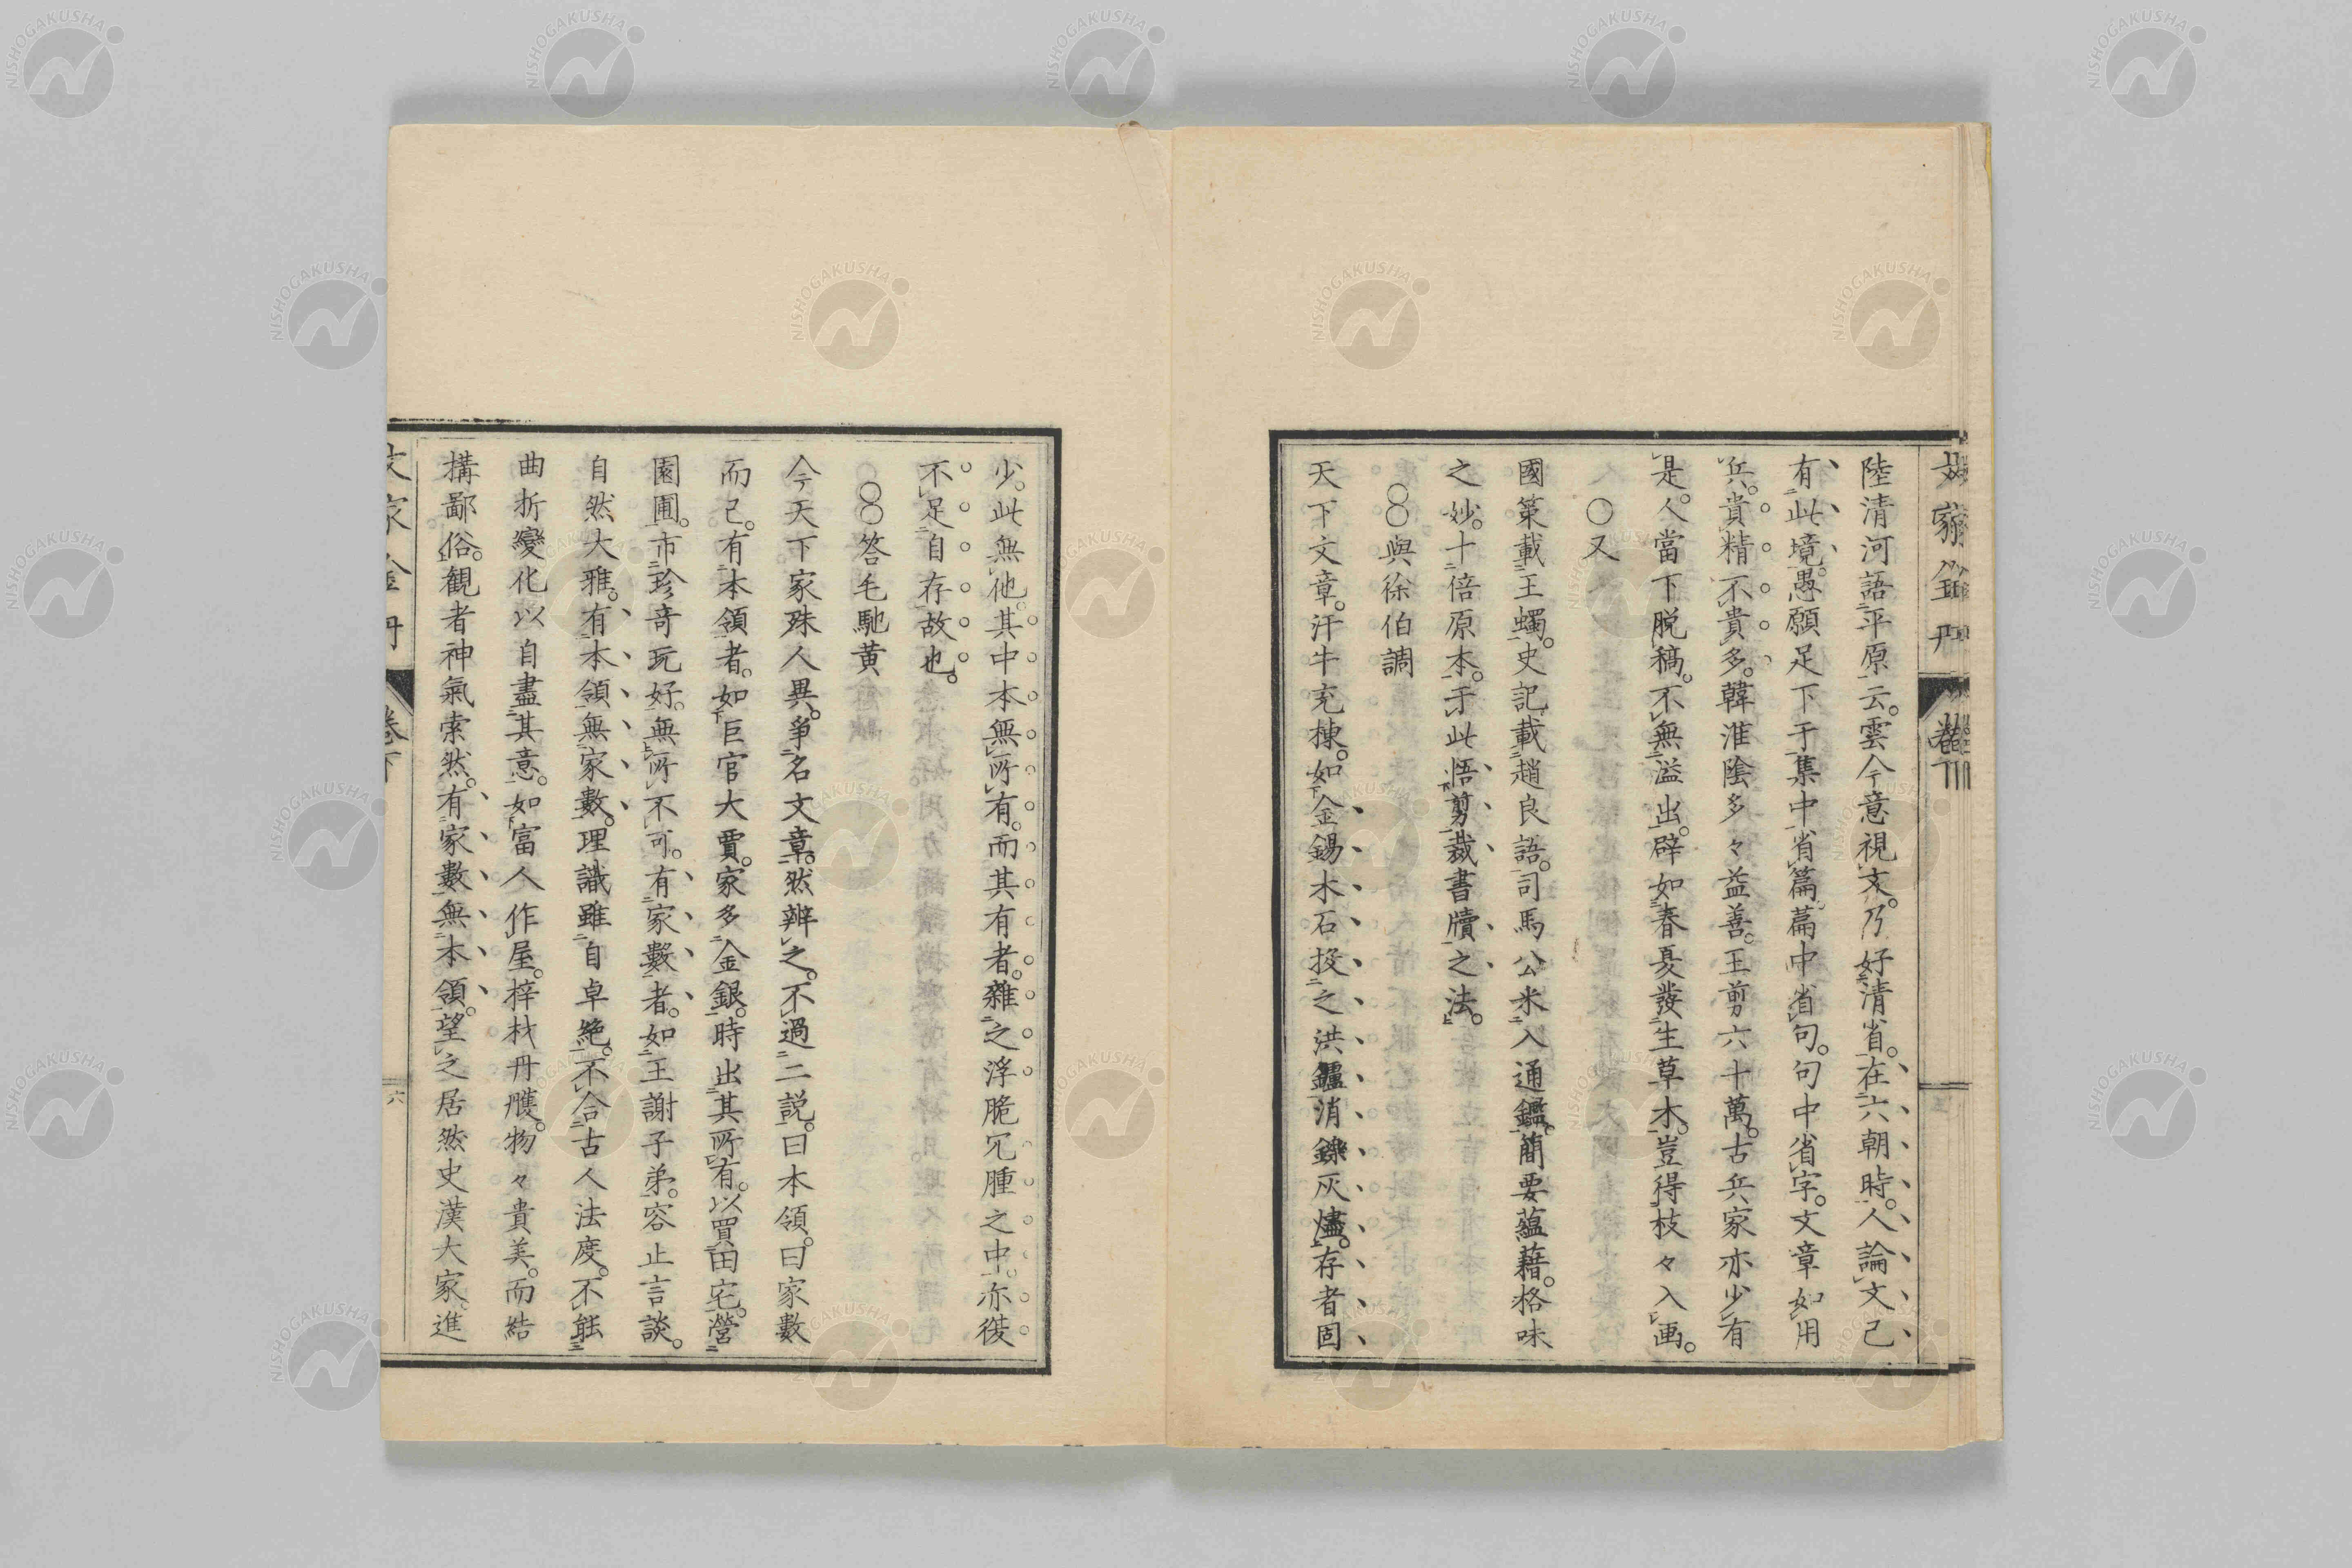 陸清河語平原云。雲今意視文。乃好清省。在六朝時。人論文已
有此境。愚願足下于集中省篇。篇中省句。句中省字。文章如用
兵。貴精不貴多。韓淮陰多々益善。王剪六十萬。古兵家亦少有
是。人當下脱稿。不無溢出。辟如春夏發生草木。豈得枝々入画。
○又
國策載王蠋。史記載趙良語。司馬公米入通鑑。簡要蘊藉。格味
之妙。十倍原本。于此悟剪裁書牘之法。
○○與徐伯調
天下文章。汗牛充棟。如金錫木石投之洪鑪。消鑠灰燼。存者固
少。此無他。其中本無所有。而其有者。雜之浮脆冗腫之中。亦復
不足自存故也。
○○答毛馳黄
今天下家殊人異。爭名文章。然辨之。不過二説。曰本領。曰家數
而已。有本領者。如巨官大賈。家多金銀。時出其所有。以買田宅。營
園圃。市珍奇玩好。無所不可。有家數者。如王謝子弟。容止言談。
自然大雅。有本領無家數。理識雖自卓絶。不合古人法度。不能
曲折變化以自盡其意。如富人作屋。梓材丹雘。物々貴美。而結
搆鄙俗。観者神氣索然。有家數無本領。望之居然史漢大家。進
文家金丹
卷下
六